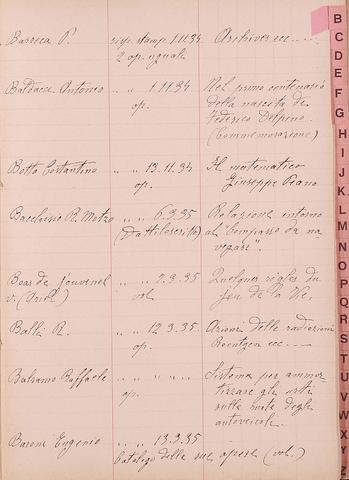 Barreca P. risp. stamp. 1.11.34 Archives ecc ....
2 op. uguali
Baldacci Antonio " " 1.11.34 Nel primo centenario
op. della nascita di
Federico Delpino.
(Commemorazione)
Botto Costantino " " 13.11.34 Il matematico
op. Giuseppe Peano
Bacchisio R. Motzo " " 6.3.35 Relazione intorno
(Dattiloscritto) al "Compasso da na
vegare".
Bear de Jouvenel " " 7.3.35 Quelques règles du
v. vol. jeu de la Vie.
Balli R. " " 12.3.35 Azioni delle radiazioni
op. Roentgen ecc —
Balsamo Raffaele " " " " Sistema per ammor-
op. tizzare gli urti
sulle ruote degli
autoveicoli.
Barone Eugenio " " 13.3.35
Catalogo delle sue opere (vol.)
B
C
D
E
F
G
H
I
J
K
L
M
N
O
P
Q
R
S
T
U
V
W
X
Y
Z